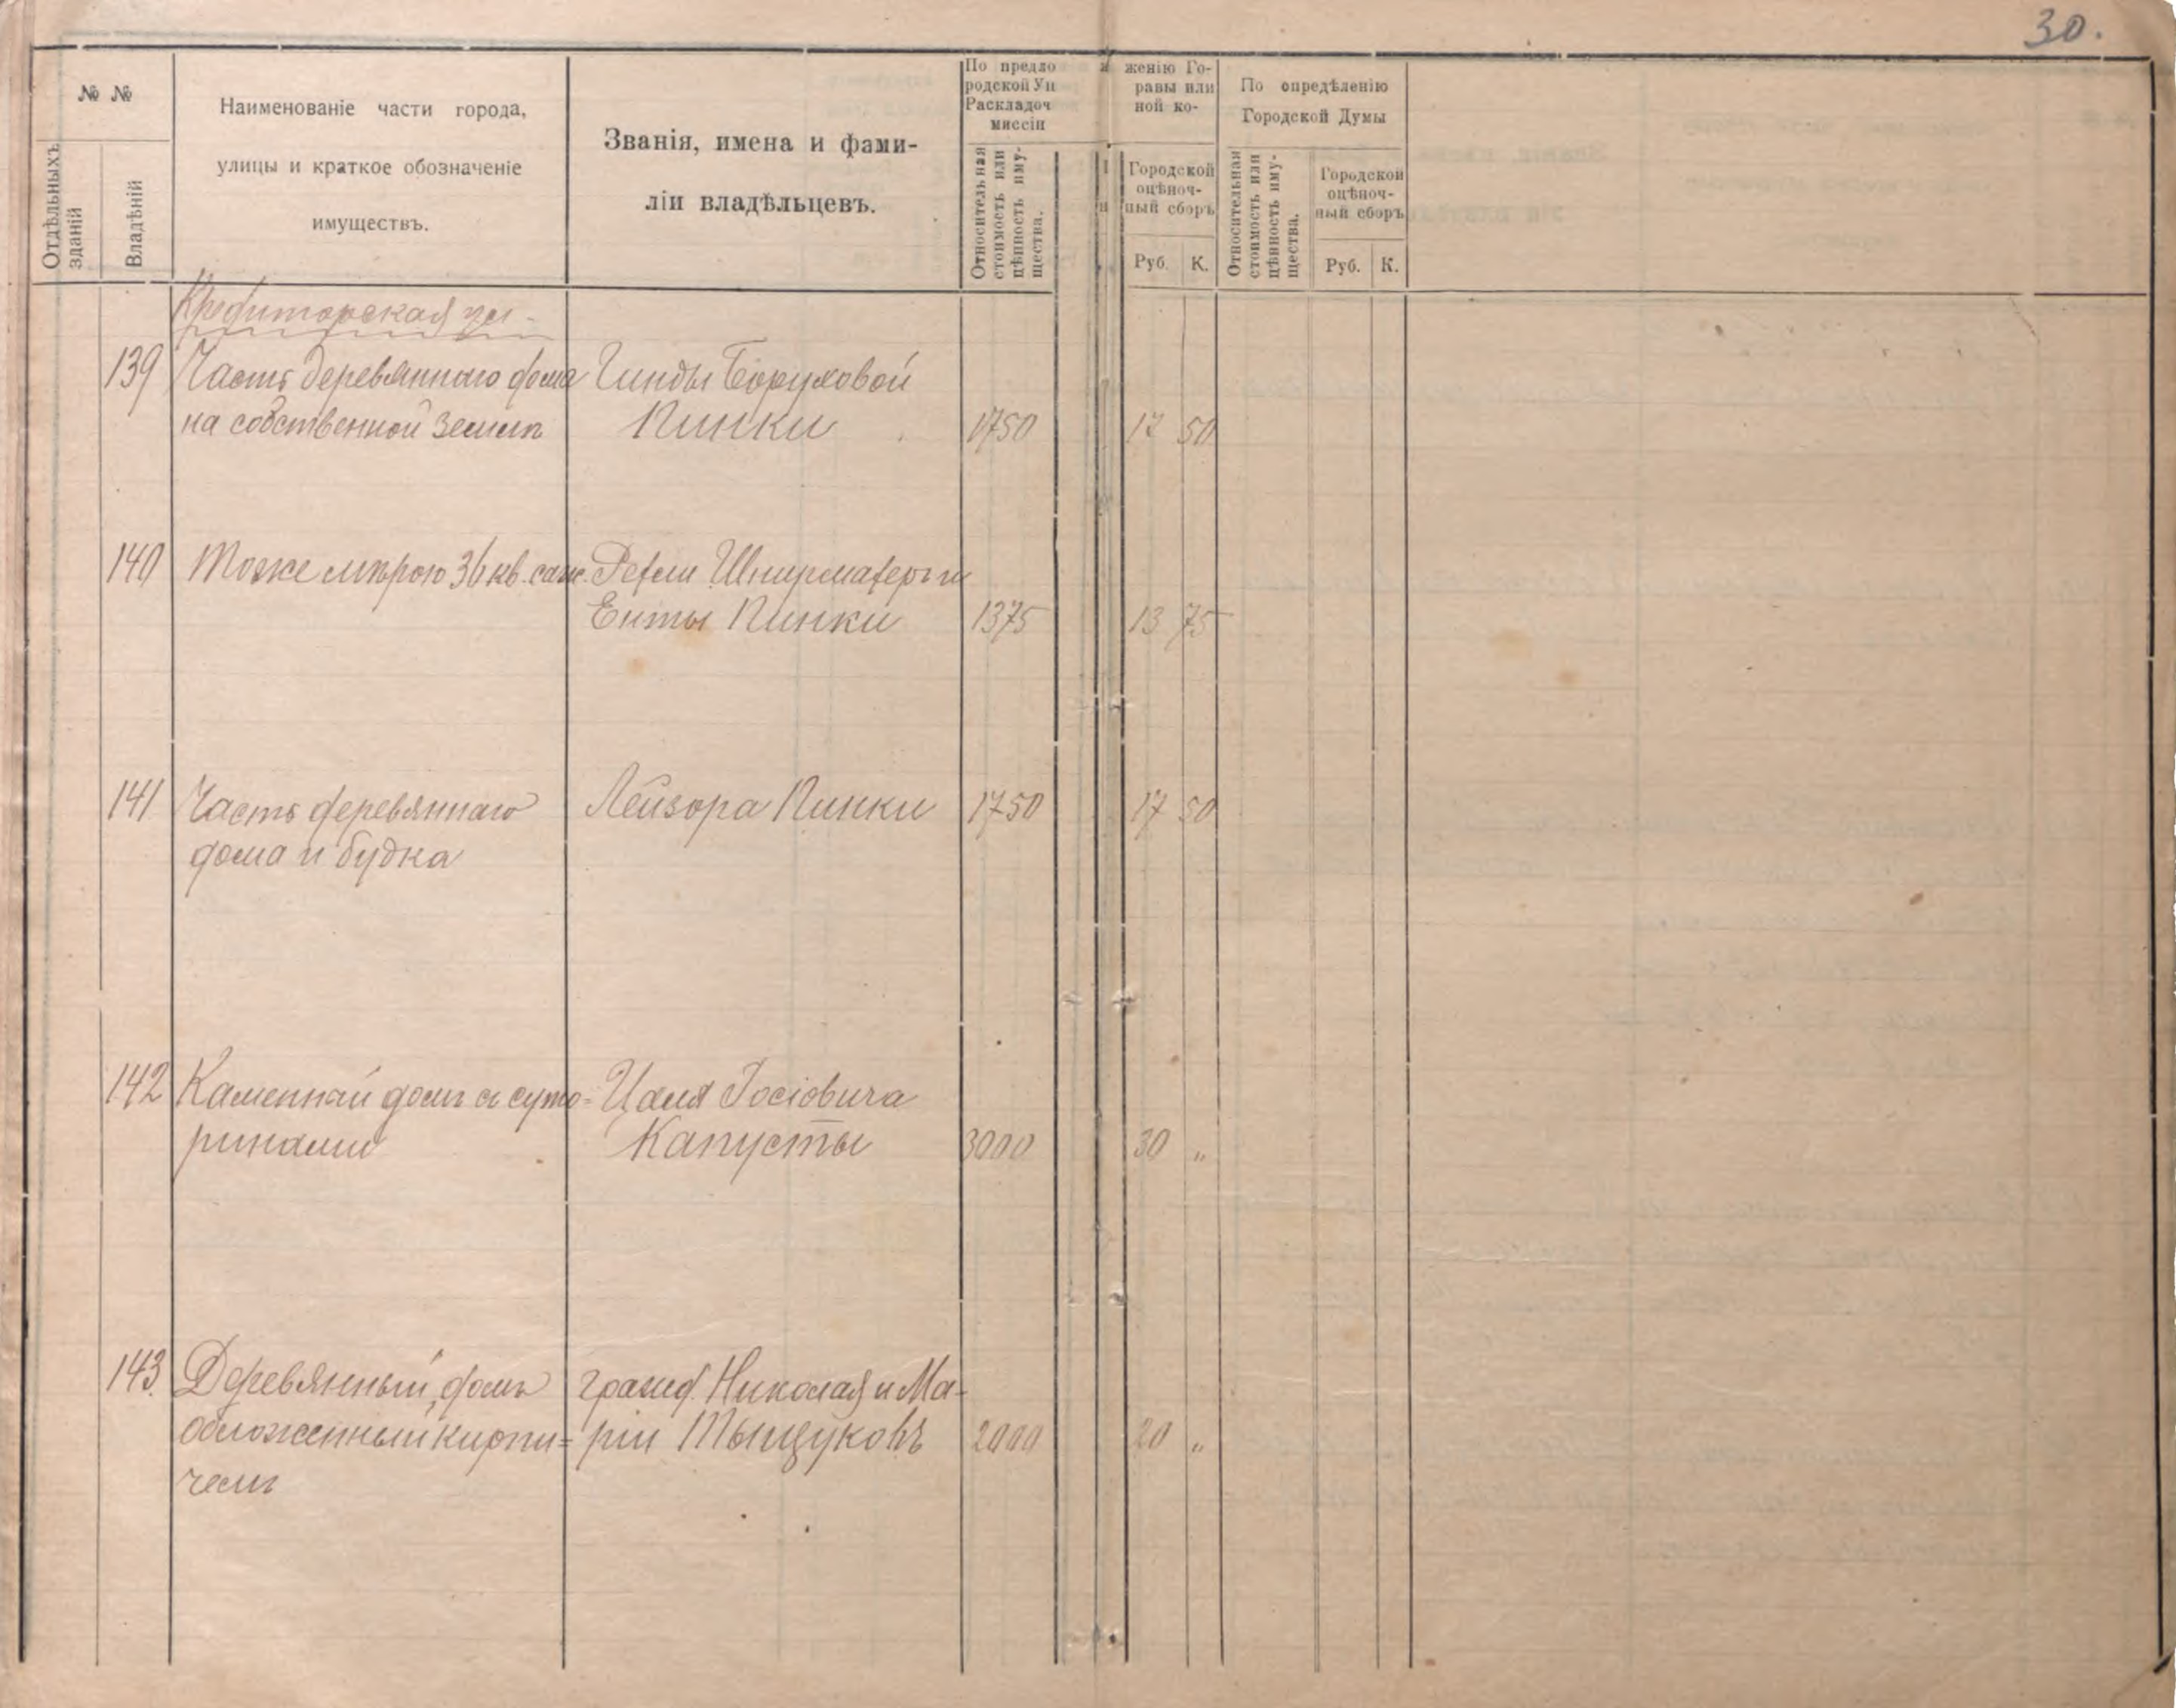 30.
№ №
Отдѣльныхъ зданій
Владѣній
Наименованіе части города,
улицы и краткое обозначеніе
имуществъ.
Званія, имена и фами-
ліи владѣльцевъ.
По предло женію Го-
родской Уп равы или
Расkладоч ной ко-
миссіи
Относительная
стоимость или
цѣнность иму-
щества.
Городской
оцѣноч-
ный сборъ
Руб. К.
По опредѣленію
Городской Думы
Относительная
стоимость или
цѣнность иму-
щества.
Городской
оцѣноч-
ный сборъ
Руб. К.
Кредиторская ул-
139 Часть деревяннаго дома Гинды Боруховой
на собственной землѣ Пинки 1750 17 50
140 Тоже мѣрою 36 кв. саж.
Енты Пинки 1375 13 75
141 Часть деревяннаго Лейзора Пинки 1750 17 50
дома и будка
142 Каменный домъ съ суто- Іосіовича
ринами Капусты 3000 30 "
143. Деревянный домъ гражд. Николая и Ма-
обложенный кирпи= ріи Тыщуковъ 2000 20 "
чемъ